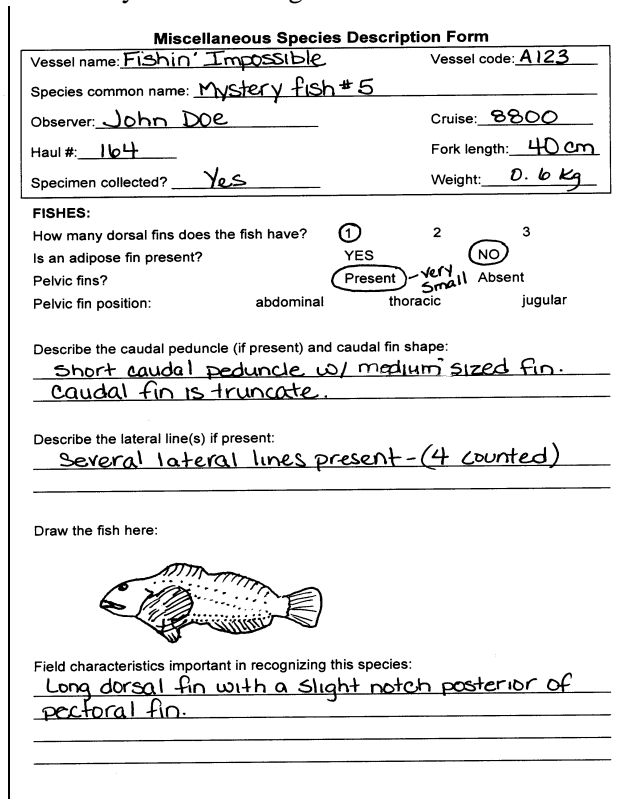 Miscellaneous Species Description Form
Vessel name: Fishin' Impossible Vessel code: A123
Species common name: Mystery fish #5
Observer: John Doe Cruise: 8800
Haul #: 164 Fork length: 40 cm
Specimen collected? Yes Weight: 0.6 kg
FISHES:
How many dorsal fins does the fish have? 1 2 3
Is an adipose fin present? YES NO
Pelvic fins? Present - very small Absent
Pelvic fin position: abdominal thoracic jugular
Describe the caudal peduncle (if present) and caudal fin shape:
Short caudal peduncle w/ medium sized fin.
Caudal fin is truncate.
Describe the lateral line(s) if present:
Several lateral lines present - (4 counted)
Draw the fish here:
Field characteristics important in recognizing this species:
Long dorsal fin with a slight notch posterior of
pectoral fin.